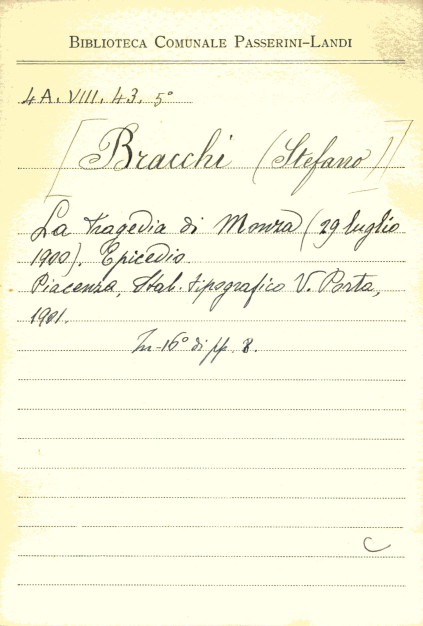 BIBLIOTECA COMUNALE PASSERINI-LANDI
4A. VIII. 43. 5°
[Bracchi (Stefano)]
La tragedia di Monza (29 luglio
1900). Epicedio
Piacenza, Stab. tipografico V. Porta,
1901.
In-16° di pp. 8.
C